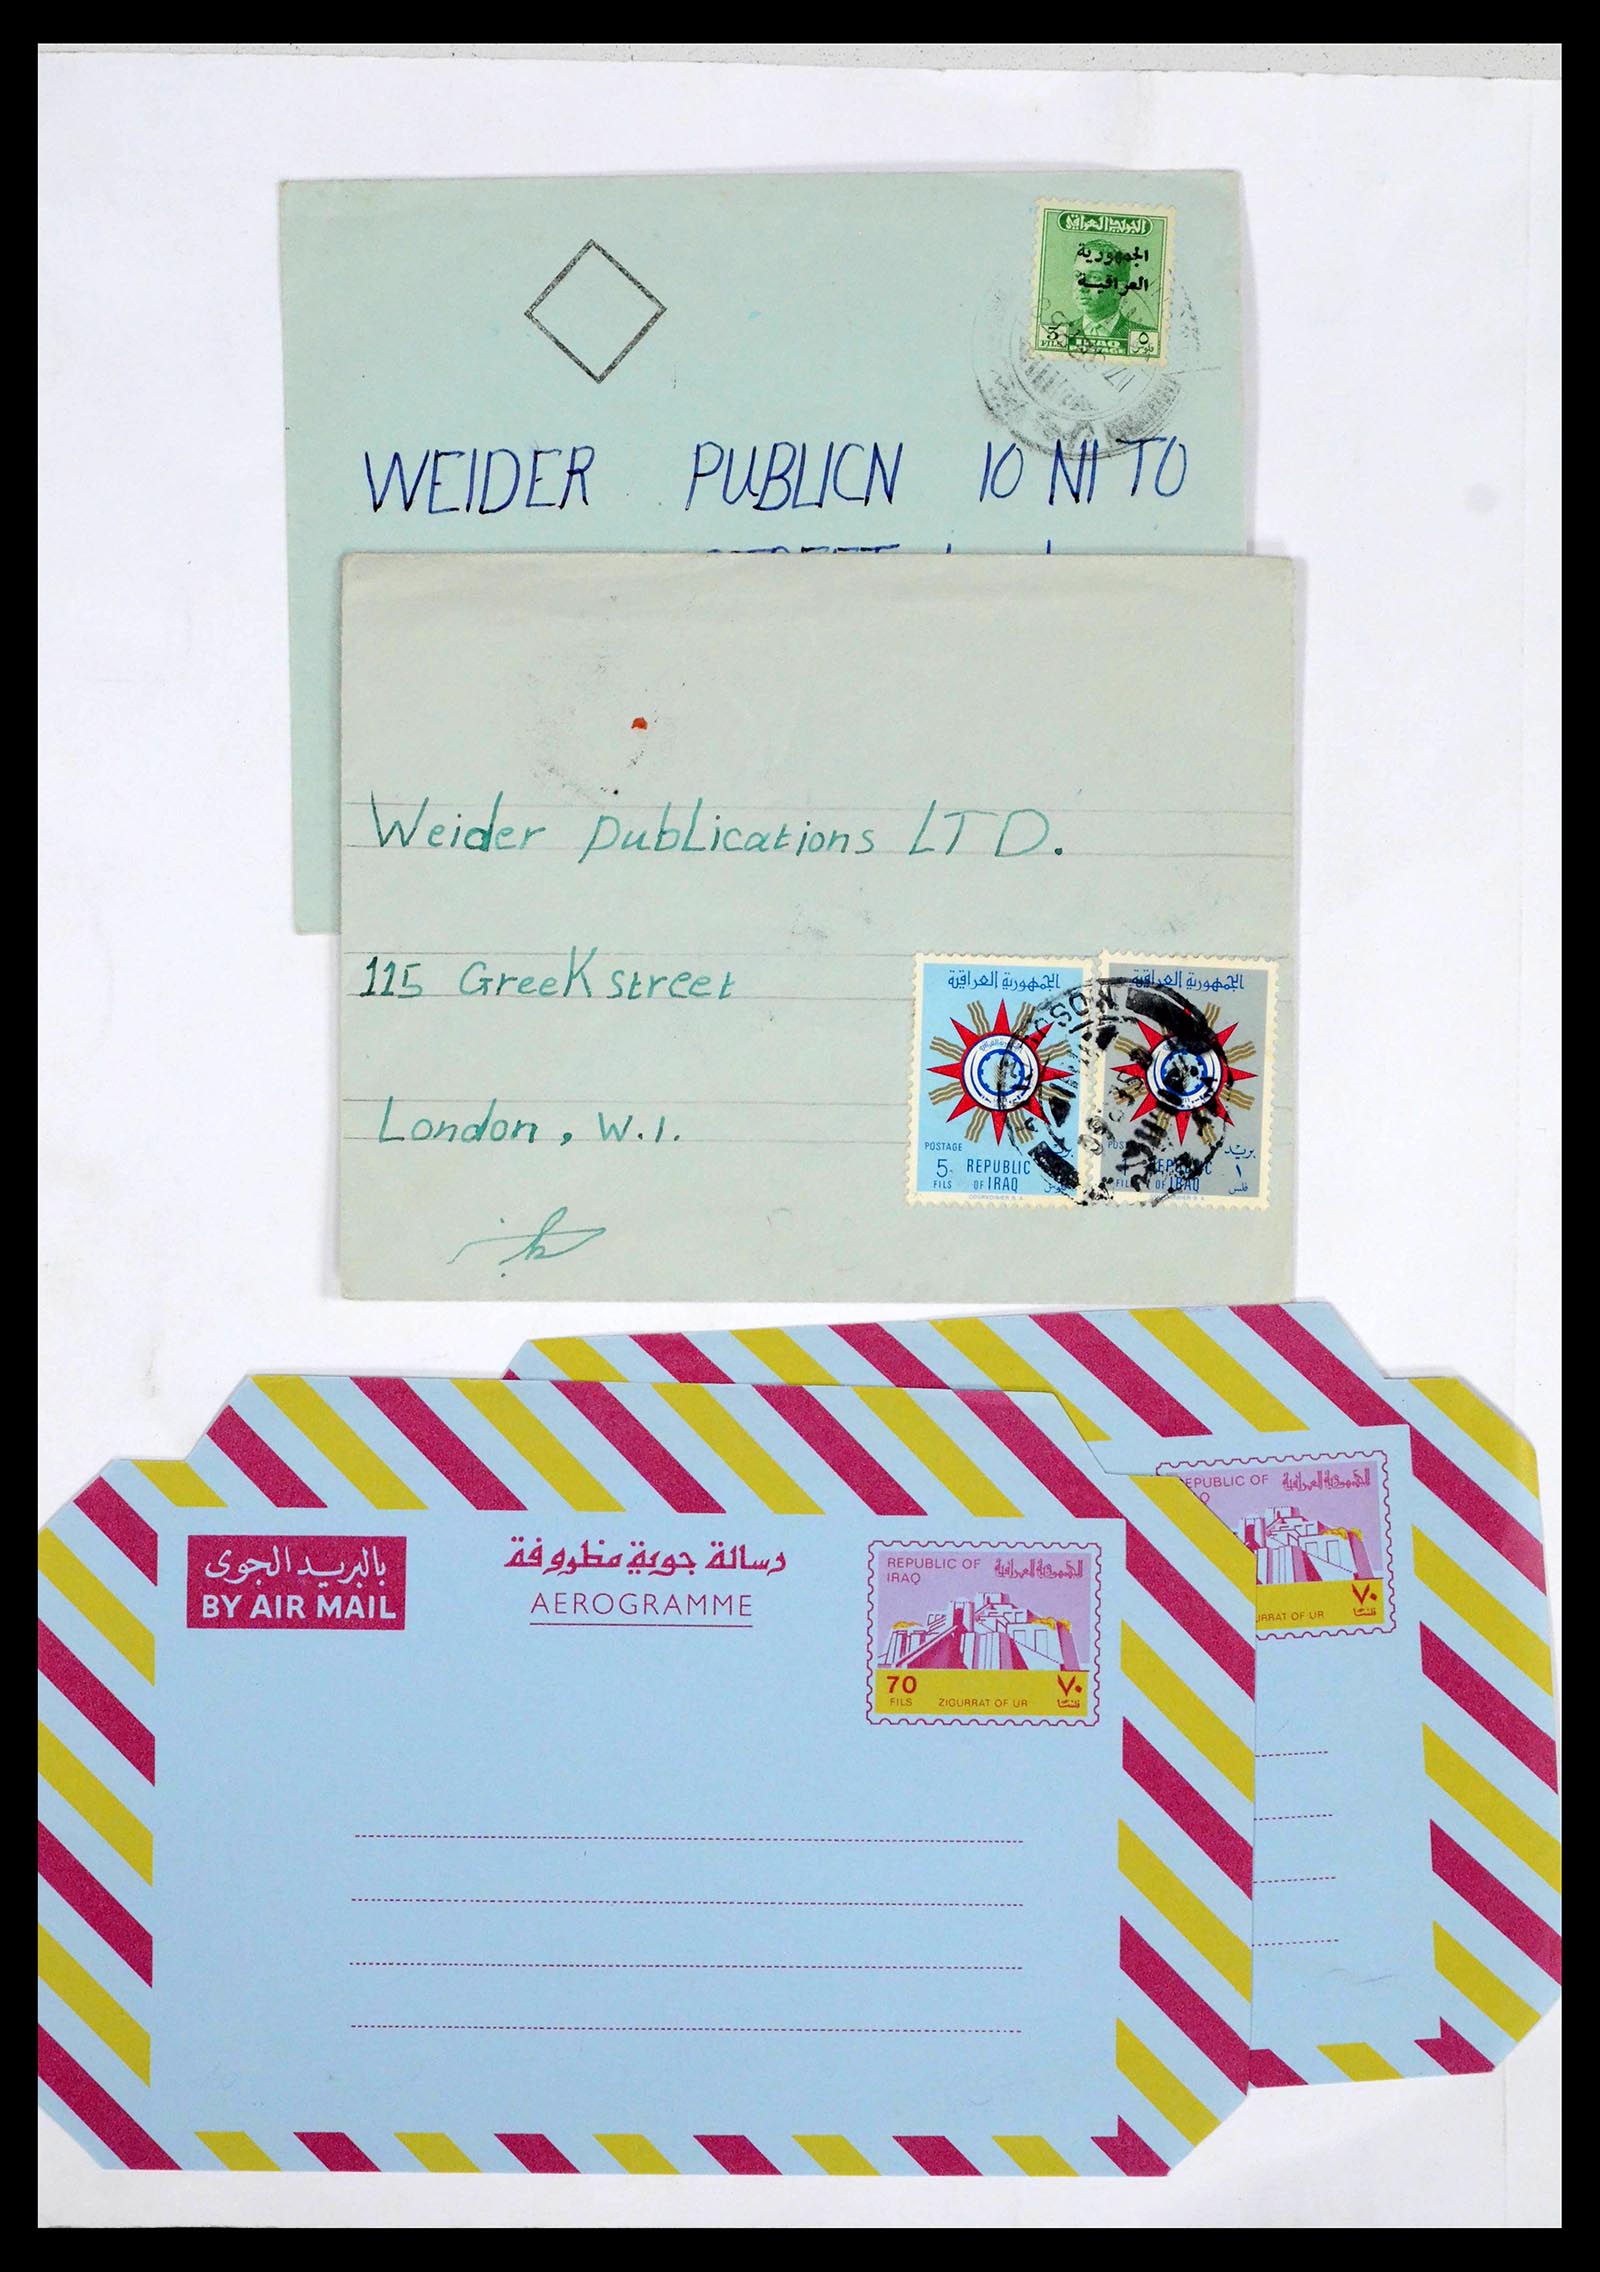 البريد العراقية
الجمهورية
العراقية
IRAQ
POSTAGE
WEIDER PUBLICN 10 NITO
Weider Publications LTD.
115 Greek street
London, W.1.
الجمهورية العراقية
POSTAGE
5 REPUBLIC
FILS OF IRAQ
الجمهورية العراقية
MOSUL
بريد
REPUBLIC ١
OF IRAQ فلس
REPUBLIC OF الجمهورية العراقية
٧٠
ZIGURRAT OF UR
بالبريد الجوى
BY AIR MAIL
رسالة جوية مظروفة
AEROGRAMME
REPUBLIC OF الجمهورية العراقية
IRAQ
70 ٧٠
FILS ZIGURRAT OF UR فلسا